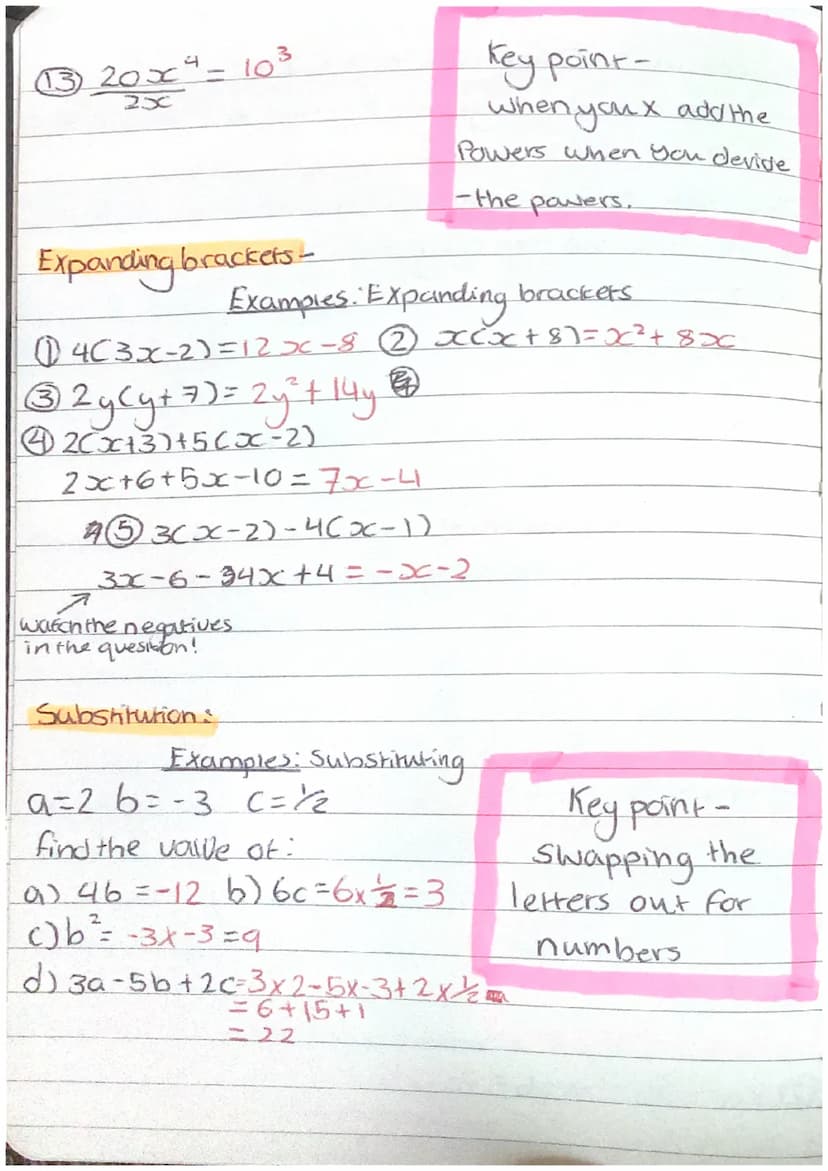 ⑬ 20x⁴/2x = 10³
Key point -
when you x add the
Powers when you devide
- the powers.
Expanding brackets -
Examples: Expanding brackets
① 4(3x-2) = 12x-8 ② x(x+8) = x²+8x
③ 2y(y+7) = 2y²+14y
④ 2(x+3)+5(x-2)
2x+6+5x-10 = 7x-4
⑤ 3(x-2)-4(x-1)
3x-6-4x+4 = -x-2
watch the negatives
in the question!
Substitution:
Examples: Substituting
a=2 b=-3 c=½
find the value of:
a) 4b = -12 b) 6c = 6x½ = 3
c) b² = -3x-3 = 9
d) 3a-5b+2c = 3x2-5x-3+2x½
= 6+15+1
= 22
Key point -
Swapping the
letters out for
numbers